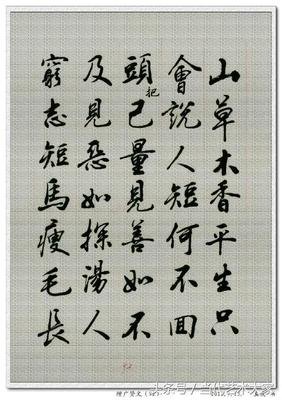 山草木香平生只
會說人短何不回
頭把己量見善如不
及見惡如探湯人
窮志短馬瘦毛長
增广贤文
头条号 / 当代艺术大家